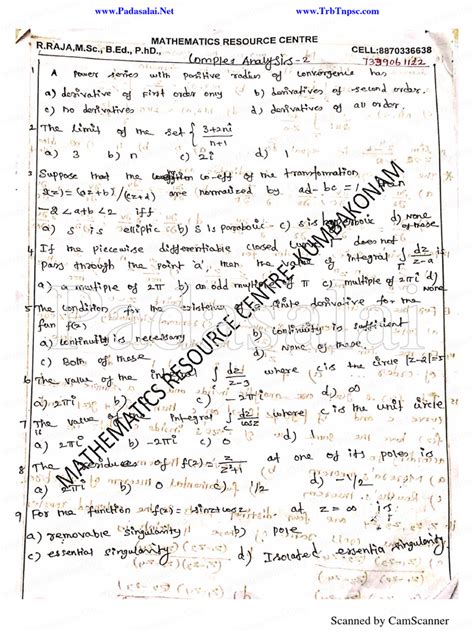 www.Padasalai.Net www.TrbTnpsc.com
MATHEMATICS RESOURCE CENTRE
R.RAJA,M.Sc., B.Ed., P.hD., CELL:8870336638
Complex Analysis-2 7339061122
1 A power series with positive radius of convergence has
a) derivative of first order only b) derivatives of second order.
c) no derivatives d) derivatives of all order.
2 The limit of the set { 3+2ni / n+1
a) 3 b) n c) 2i d) 1
3 Suppose that the co-eff of the transformation
S(z)=(az+b)/(cz+d) are normalized by ad-bc=1
-2<a+b<2 iff
a) S is elliptic b) S is parabolic c) S is d) none of these
4 If the piecewise differentiable closed does not
pass through the point 'a', then the value of integral ∫ dz/z-a is
a) a multiple of 2π b) an odd multiple of π c) multiple of 2πi d) none
5 The condition for the existence finite derivative for the
fan f(z)
a) continuity is necessary b) continuity is sufficient
c) Both of these d) none of these.
6 The value of the integral ∫ dz/z-3 where c is the circle |z-2|=5
a) 2πi b) c) -2πi d) ∞
7 The value of integral ∫ dz/cosz where c is the unit circle
a) 2πi b) -2πi c) 0
8 The residues of f(z)= z/z²+1 at one of its pole is
a) 2πi b) 0 c) 1/2 d) -1/2
9 For the function f(z)=
a) removable singularity b) pole
c) essential singularity d) Isolated essential singularity.
MATHEMATICS RESOURCE CENTRE-KUMBAKONAM
Padasalai
Scanned by CamScanner